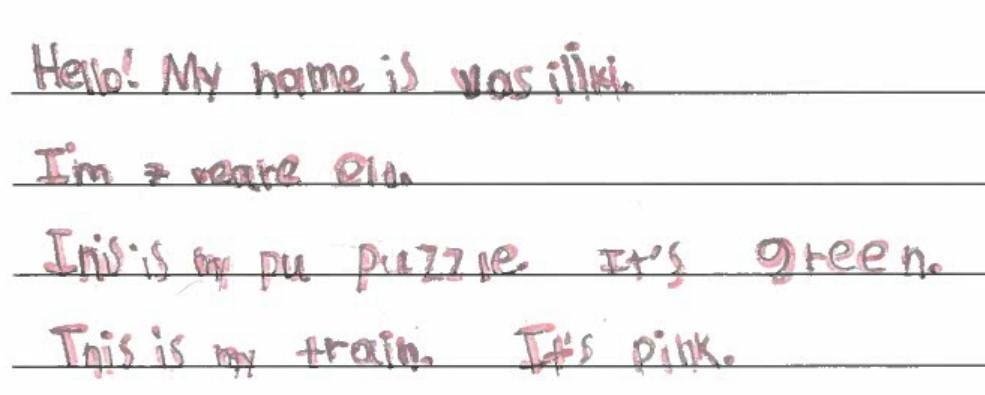 Hello! My name is vasiliki.
I'm 7 years old.
This is my pu puzzle It's green.
This is my train. It's pink.